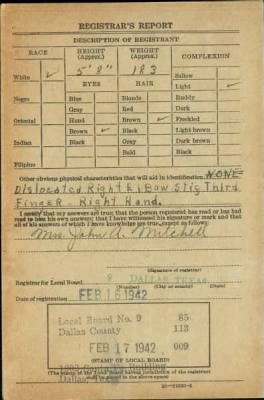 REGISTRAR'S REPORT
DESCRIPTION OF REGISTRANT
RACE
HEIGHT (Approx.)
WEIGHT (Approx.)
COMPLEXION
5' 8"
183
White ✓
EYES
HAIR
Sallow
Light ✓
Negro
Blue
Blonde
Ruddy
Gray
Red
Dark
Oriental
Hazel
Brown ✓
Freckled
Brown ✓
Black
Light brown
Indian
Black
Gray
Dark brown
Bald
Black
Filipino
Other obvious physical characteristics that will aid in identification NONE
Dislocated Right Elbow Stig Third
Finger - Right Hand.
I certify that my answers are true; that the person registered has read or has had
read to him his own answers; that I have witnessed his signature or mark and that
all of his answers of which I have knowledge are true, except as follows:
Mrs. John A. Mitchell
(Signature of registrar)
Registrar for Local Board 9 DALLAS TEXAS
(Number) (City or county) (State)
Date of registration FEB 16 1942
Local Board No. 9 85
Dallas County 113
FEB 17 1942 009
1002 Building
Dallas, Texas
(STAMP OF LOCAL BOARD)
(The stamp of the Local Board having jurisdiction of the registrant
shall be placed in the above space)